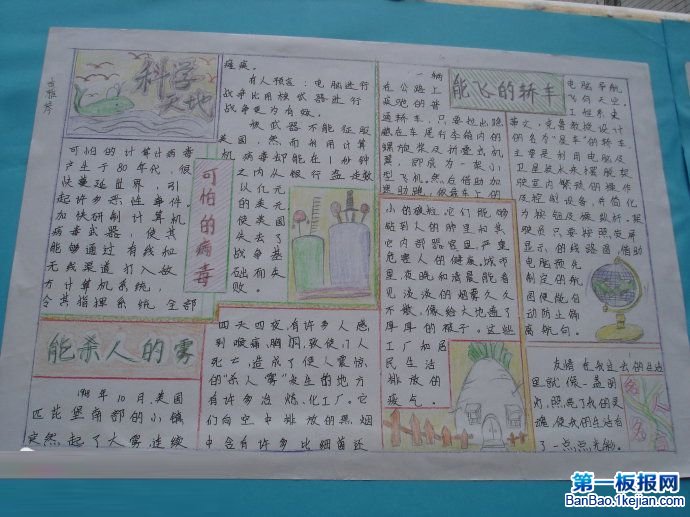 科学
天地
可怕的计算计病毒
产生于80年代,很
快蔓延世界,引
起许多恶性事件。
加快研制计算机
病毒武器,使其
能够通过有线和
无线渠道打入敌
方计算机系统,
令其指挥系统全部
瘫痪。
有人预言:电脑进行
战争比用核武器进行
战争更为有效。
核武器不能征服
美国,然而利用计算
机病毒却能在1秒钟
之内从银行盗走数
以亿元
的美元,
使美国
失去了
战争基
础而失
败。
可怕的病毒
能杀人的雾
1948年10月,美国
匹兹堡南部的小镇
突然起了大雾,连续
四天四夜,有许多人感
到喉痛、胸闷,致使几人
死亡,造成了使人震惊
的“杀人雾”发生的地方
有许多冶炼、化工厂。它
们向空中排放的黑烟
中含有许多比细菌还
小的微粒,它们能够
钻到人的肺里和其
它内部器官里,严重
危害人的健康。城市
里,夜晚和清晨能看
见淡淡的烟雾久久
不散,像给大地通了
厚厚的被子。这些
工厂和居
民生活
排放的
废气。
能飞的轿车
一辆
在公路上
疾驰的普
通轿车,只要拉出隐
藏在车尾行李箱内的
螺旋桨及折叠式机
翼,即成为一架小
型飞机。然后借助加
速助跑,
电脑导航
飞向天空。
工程系史
蒂文,克鲁教授设计
的名为“星车”的轿车,
主要是利用电脑及
卫星技术来摆脱驾
驶室内繁琐的操作
及控制设备,并简化
为按钮及操纵杆。驾
驶员只要按照荧屏
显示的线路图,借助
电脑预先
制定的航
图便能自
动防止偏
离航向。
友情在我过去的日子
里就像一盏明
灯,照亮了我的灵
魂,使我的生活有
了一点点光彩。
名人
名言
第一板报网
BanBao.1kejian.com